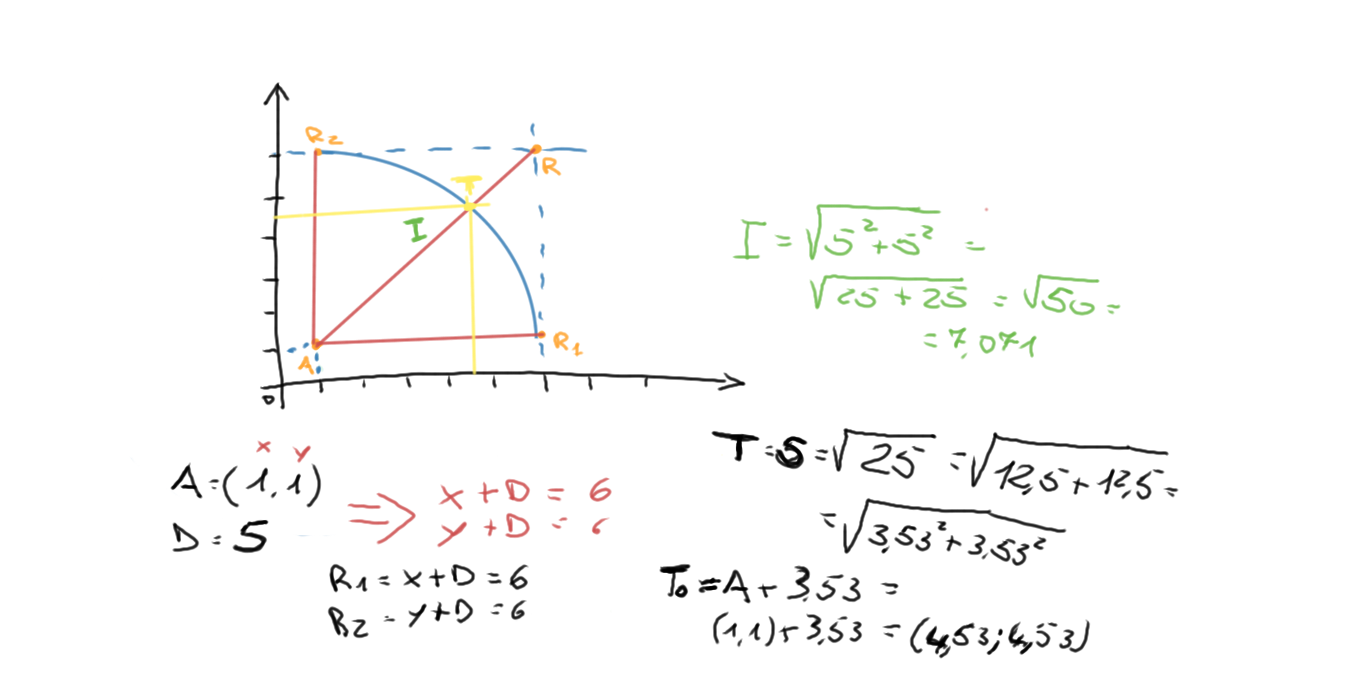 R2
R
T
I
R1
A
0
I = √5²+5² =
√25 + 25 = √50 =
= 7,071
x y
A = (1,1)
D = 5
⇒ x + D = 6
y + D = 6
R1 = x + D = 6
R2 = y + D = 6
T = 5 = √25 = √12,5 + 12,5 =
= √3,53² + 3,53²
T0 = A + 3,53 =
(1,1) + 3,53 = (4,53; 4,53)